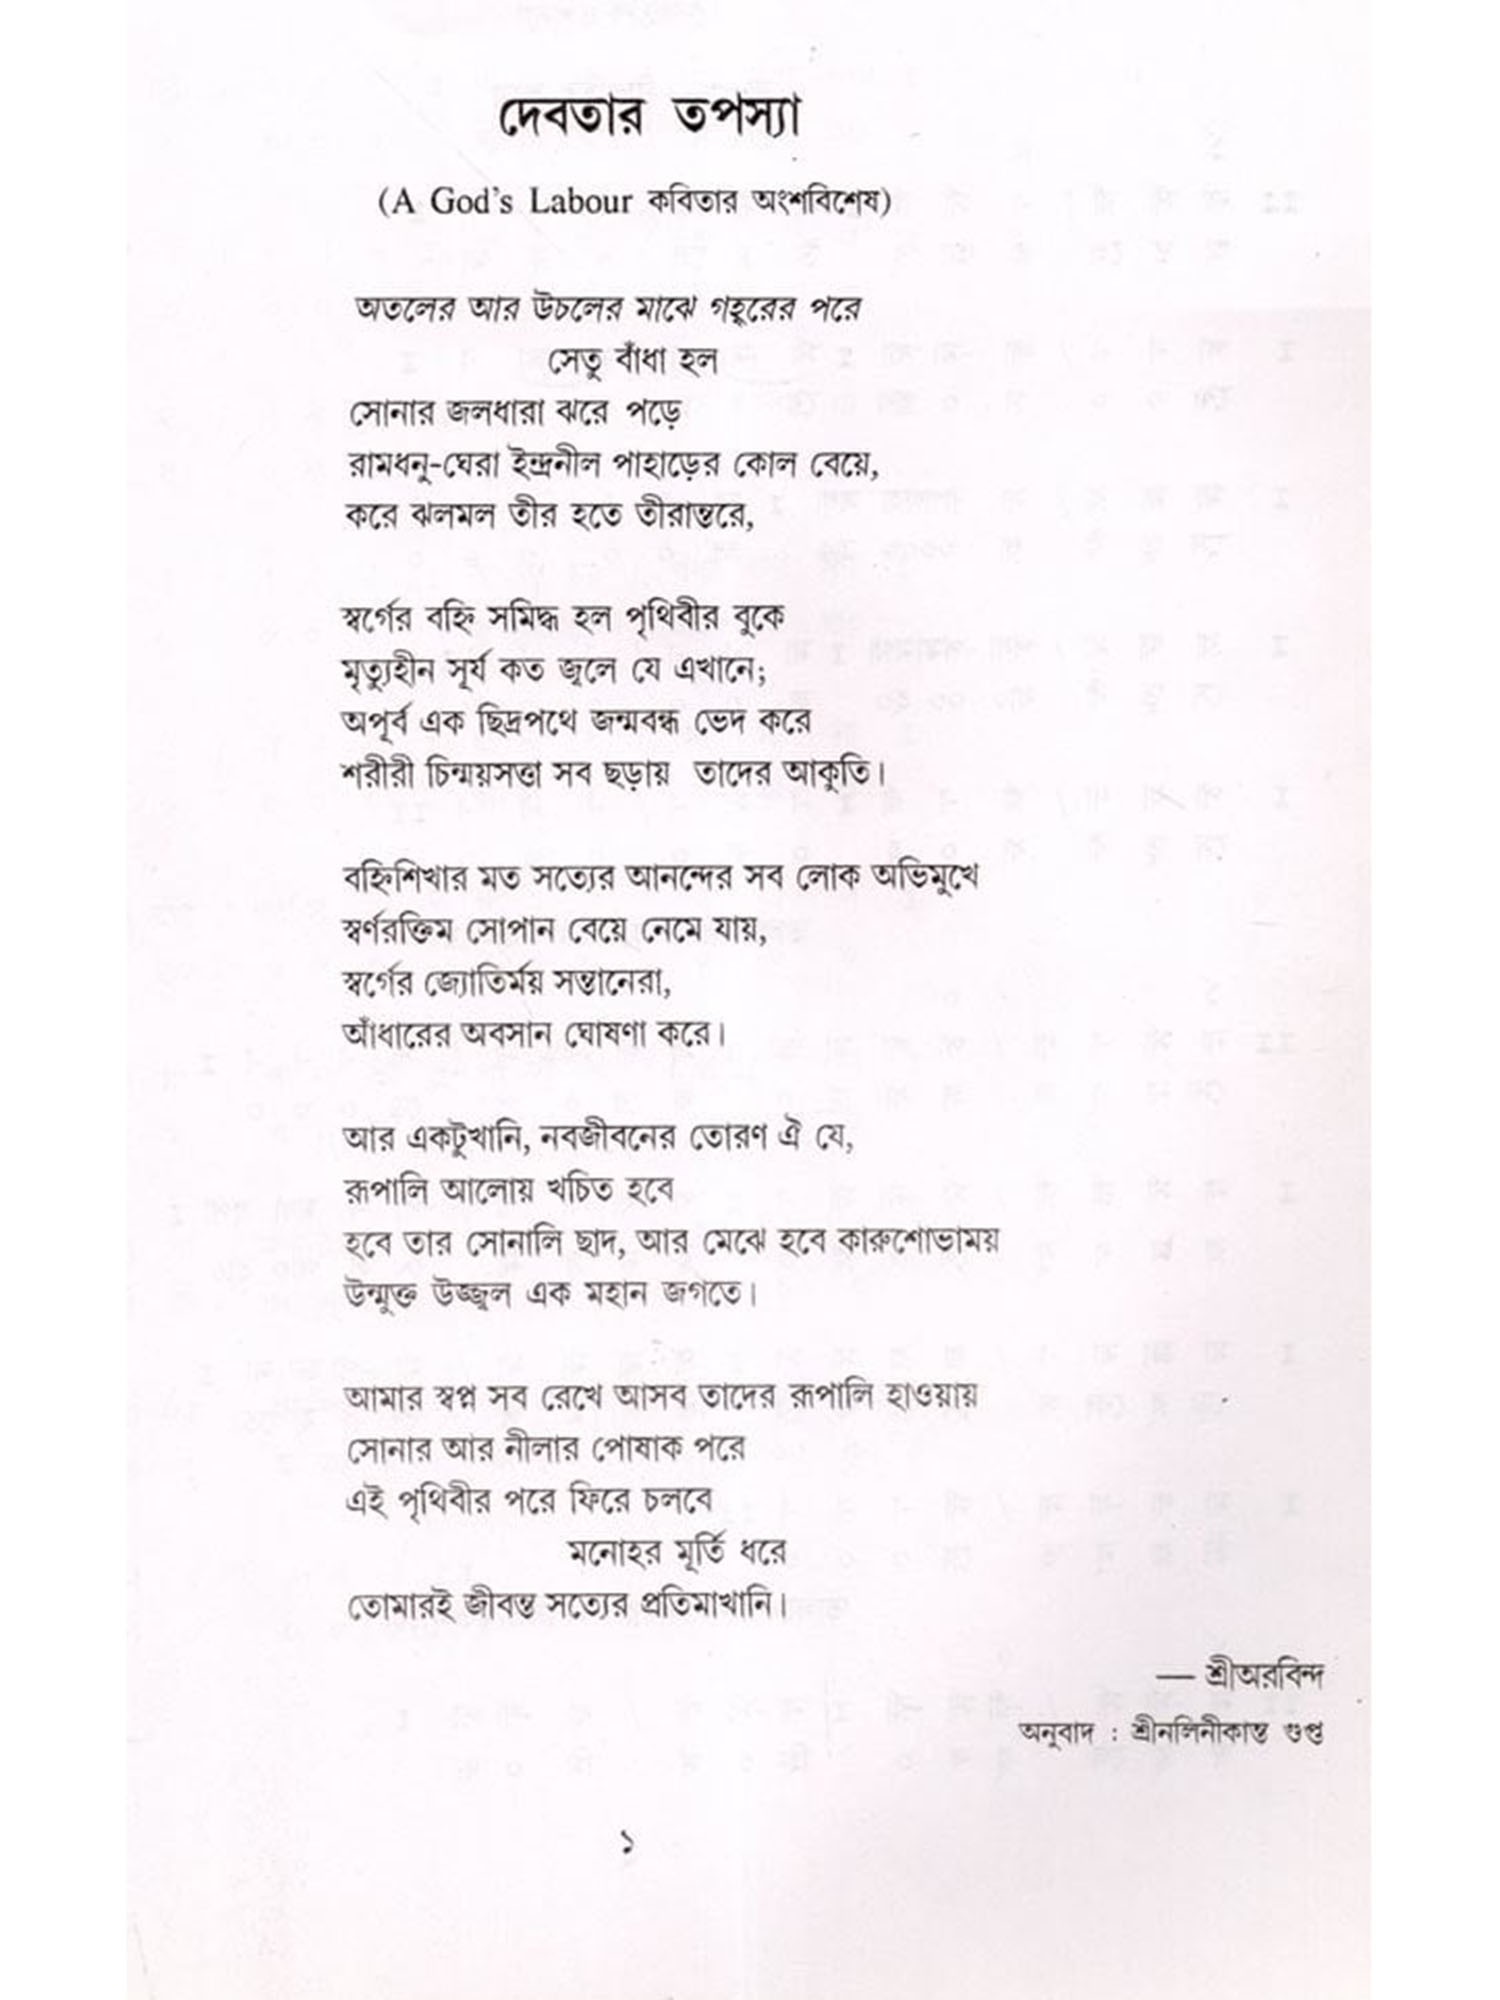 দেবতার তপস্যা
(A God's Labour কবিতার অংশবিশেষ)
অতলের আর উচলের মাঝে গহ্বরের পরে
সেতু বাঁধা হল
সোনার জলধারা ঝরে পড়ে
রামধনু-ঘেরা ইন্দ্রনীল পাহাড়ের কোল বেয়ে,
করে ঝলমল তীর হতে তীরান্তরে,
স্বর্গের বহ্নি সমিদ্ধ হল পৃথিবীর বুকে
মৃত্যুহীন সূর্য কত জ্বলে যে এখানে;
অপূর্ব এক ছিদ্রপথে জন্মবন্ধ ভেদ করে
শরীরী চিন্ময়সত্তা সব ছড়ায় তাদের আকুতি।
বহ্নিশিখার মত সত্যের আনন্দের সব লোক অভিমুখে
স্বর্ণরক্তিম সোপান বেয়ে নেমে যায়,
স্বর্গের জ্যোতির্ময় সন্তানেরা,
আঁধারের অবসান ঘোষণা করে।
আর একটুখানি, নবজীবনের তোরণ ঐ যে,
রূপালি আলোয় খচিত হবে
হবে তার সোনালি ছাদ, আর মেঝে হবে কারুশোভাময়
উন্মুক্ত উজ্জ্বল এক মহান জগতে।
আমার স্বপ্ন সব রেখে আসব তাদের রূপালি হাওয়ায়
সোনার আর নীলার পোষাক পরে
এই পৃথিবীর পরে ফিরে চলবে
মনোহর মূর্তি ধরে
তোমারই জীবন্ত সত্যের প্রতিমাখানি।
— শ্রীঅরবিন্দ
অনুবাদ : শ্রীনলিনীকান্ত গুপ্ত
১